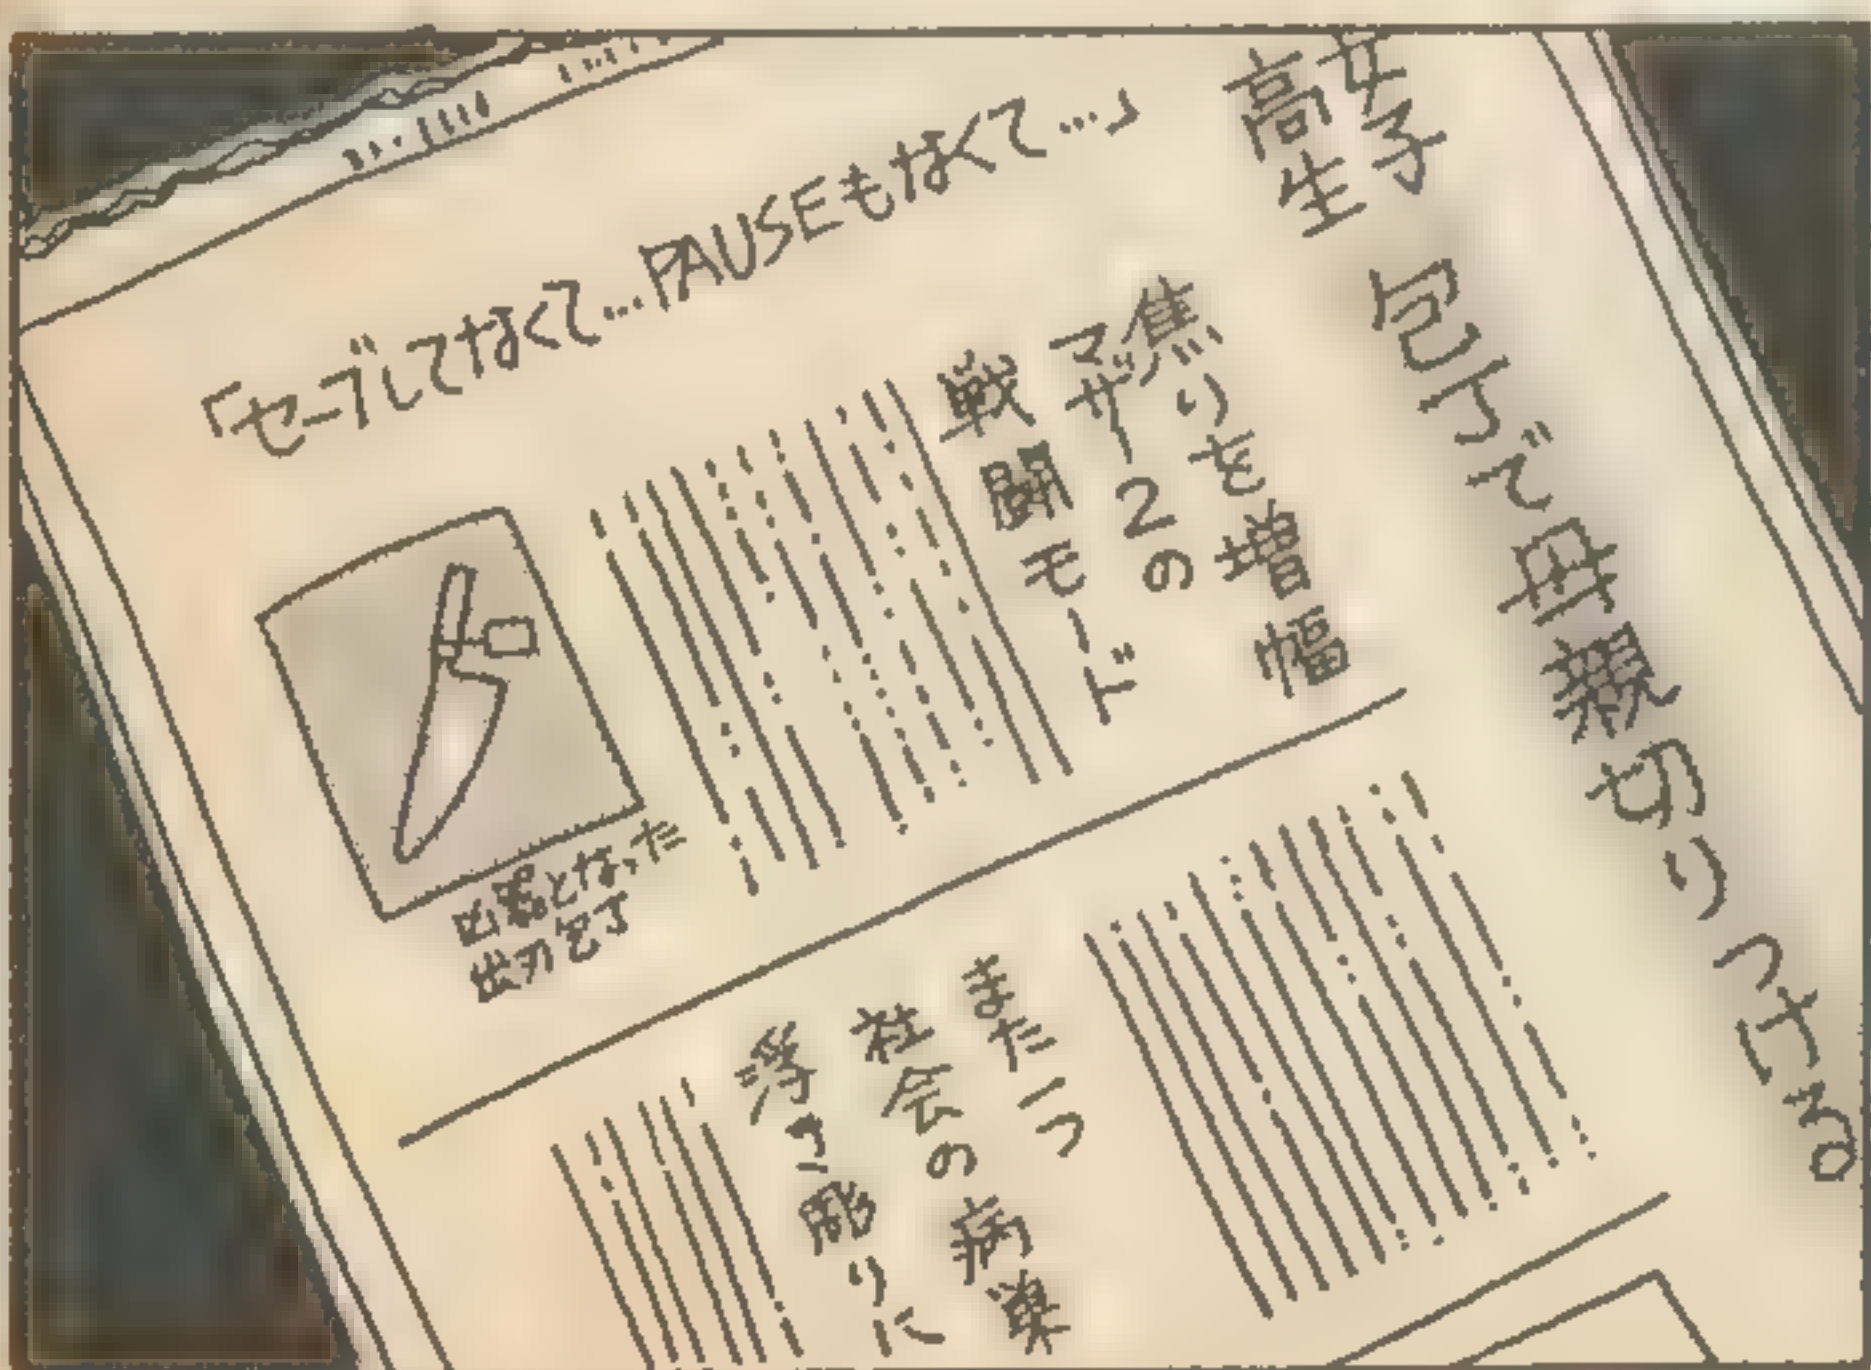 女子
高生
包丁で母親切りつける
「セーブしてなくて…PAUSEもなくて…」
焦りを増幅
マザー2の
戦闘モード
凶器となった
出刃包丁
また一つ
社会の病巣
浮き彫りに